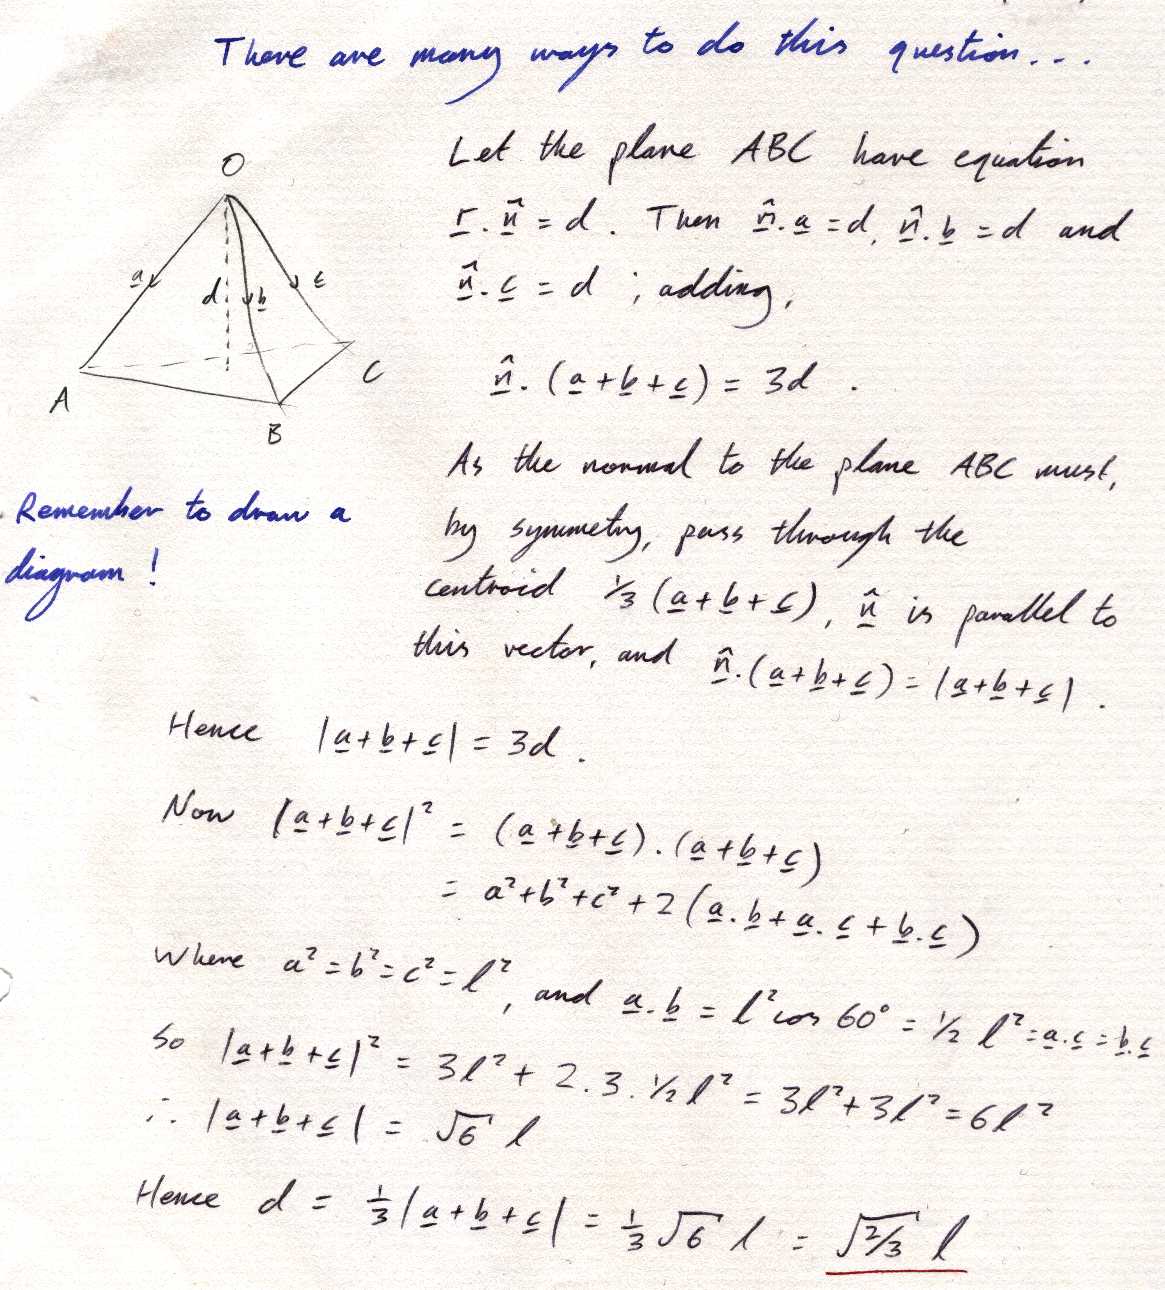 There are many ways to do this question...
O
a
d
b
c
A
B
C
Remember to draw a
diagram!
Let the plane ABC have equation
r.n̂ = d. Then n̂.a = d, n̂.b = d and
n̂.c = d ; adding,
n̂.(a+b+c) = 3d.
As the normal to the plane ABC must,
by symmetry, pass through the
centroid 1/3 (a+b+c), n̂ is parallel to
this vector, and n̂.(a+b+c) = |a+b+c|.
Hence |a+b+c| = 3d.
Now |a+b+c|² = (a+b+c).(a+b+c)
= a²+b²+c²+2(a.b+a.c+b.c)
Where a²=b²=c²=l², and a.b = l² cos 60° = 1/2 l² = a.c = b.c
So |a+b+c|² = 3l² + 2.3.1/2 l² = 3l²+3l² = 6l²
∴ |a+b+c| = √6 l
Hence d = 1/3 |a+b+c| = 1/3 √6 l = √2/3 l